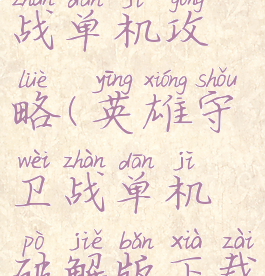 zhàn dān jī gōng
战单机攻
lüè yīng xióng shǒu
略(英雄守
wèi zhàn dān jī
卫战单机
pò jiě bǎn xià zài
破解版下载